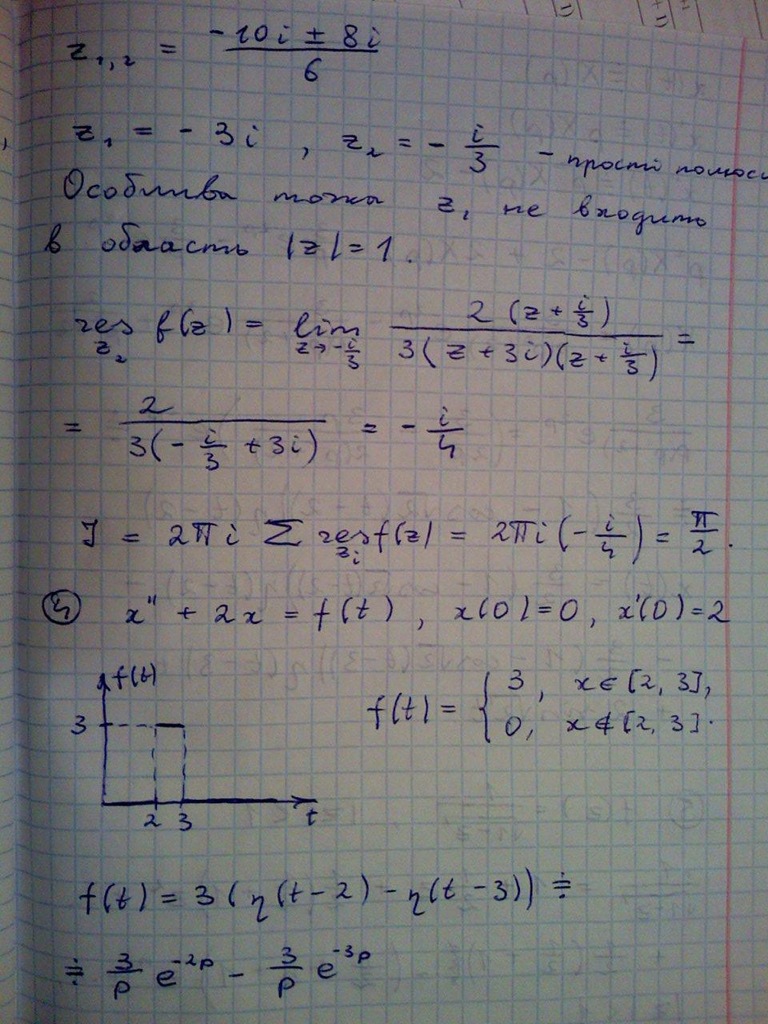 z₁,₂ = (-10i ± 8i)/6
z₁ = -3i , z₂ = -i/3 - прості полюси
Особлива точка z₁ не входить
в область |z|=1.
res_{z₂} f(z) = lim_{z→-i/3} 2(z+i/3)/(3(z+3i)(z+i/3)) =
= 2/(3(-i/3+3i)) = -i/4
I = 2πi Σ res_{zᵢ} f(z) = 2πi(-i/4) = π/2.
④ x'' + 2x = f(t) , x(0)=0, x'(0)=2
f(t)
3
2 3 t
f(t) = { 3, x∈[2, 3],
0, x∉[2, 3].
f(t) = 3(η(t-2) - η(t-3)) ≑
≑ 3/p e^{-2p} - 3/p e^{-3p}